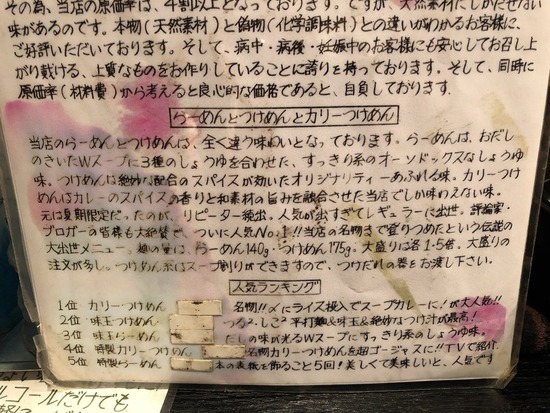 その為、当店の原価率は、4割以上となっております。ですが、天然素材にしかだせない
味があるのです。本物(天然素材)と偽物(化学調味料)との違いがわかるお客様に、
ご好評いただいております。そして、病中・病後・妊娠中のお客様にも安心してお召し上
がり戴ける、上質なものをお作りしていることに誇りを持っております。そして、同時に
原価率(材料費)から考えると良心的な価格であると、自負しております。
らーめんとつけめんとカリーつけめん
当店のらーめんとつけめんは、全く違う味わいとなっております。らーめんは、おだし
のきいたWスープに3種のしょうゆを合わせた、すっきり系のオーソドックスなしょうゆ
味。つけめんは絶妙な配合のスパイスが効いたオリジナリティーあふれる味。カリーつけ
めんはカレーのスパイスの香りと和素材の旨みを融合させた当店でしか味わえない味。
元は夏期限定だったのが、リピーター続出。人気が出すぎてレギュラーに出世。評論家・
ブロガーの皆様も大絶賛で、ついに人気No1!!当店の名物まで登りつめたという伝説の
大出世メニュー。麺の量は、らーめん140g・つけめん175g。大盛りは各1.5倍。大盛りの
注文が多し。つけめん系はスープ割りができますので、つけだれの器をお渡し下さい。
人気ランキング
1位 カリーつけめん 名物!!〆にライス投入でスープカレーに!が大人気!!
2位 味玉つけめん つる2しこ2平打麺&味玉&絶妙なつけ汁が最高!
3位 味玉らーめん だしの味が光るWスープにすっきり系のしょうゆ味。
4位 特製カリーつけめん 名物カリーつけめんを超ゴージャスに!!TVで紹介
5位 特製らーめん 本の表紙を飾ること5回!美しくて美味しいと、人気です
ルコールだけでも